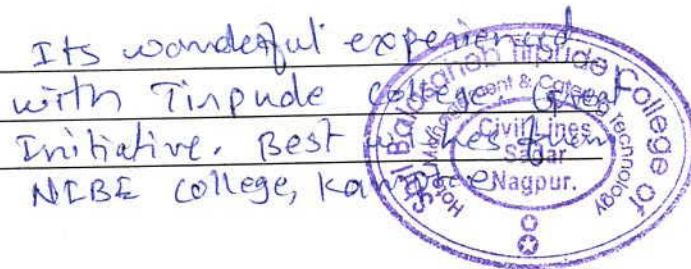 Its wonderful experienced
with Tirpude college. Great
Initiative. Best wishes from
NIBE college, Kamptee
Balasaheb Tirpude College of
Hotel Management & Catering Technology
Civil Lines
Sagar
Nagpur.